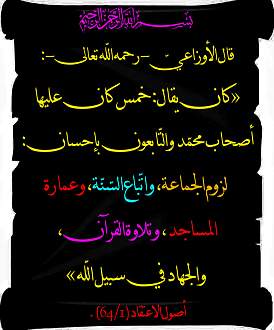 بسم الله الرحمن الرحيم
قال الأوزاعيّ -رحمه الله تعالى-:
«كان يقال: خمس كان عليها
أصحاب محمّد والتّابعون بإحسان:
لزوم الجماعة، واتّباع السّنّة، وعمارة
المساجد، وتلاوة القرآن،
والجهاد في سبيل الله»
أصول الاعتقاد (64/1).